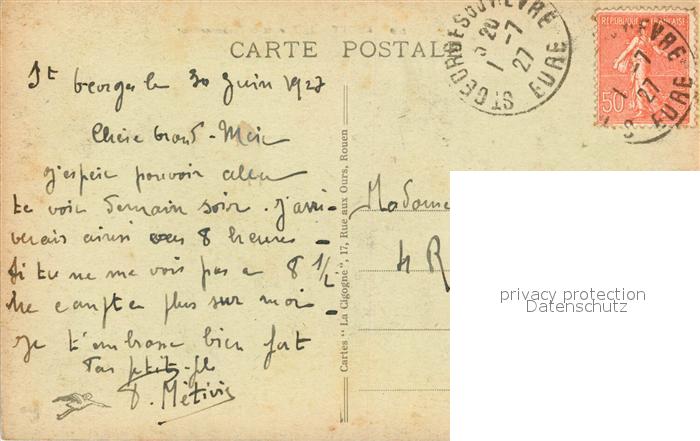 CARTE POSTALE
St Georges le 30 Juin 1927
Chère Grand-Mère
J'espère pouvoir aller
te voir demain soir. J'arri-
verais ainsi vers 8 heures -
Si tu ne me vois pas a 8 1/2
ne compte plus sur moi -
Je t'embrasse bien fort
Ton petit-fils
Métivier
Cartes "La Cigogne", 17, Rue aux Ours, Rouen
Madame
4 R
ST GEORGES DU VIEVRE
20
1-7
27
EURE
REPUBLIQUE FRANÇAISE
50
1-7
27
EURE
privacy protection
Datenschutz